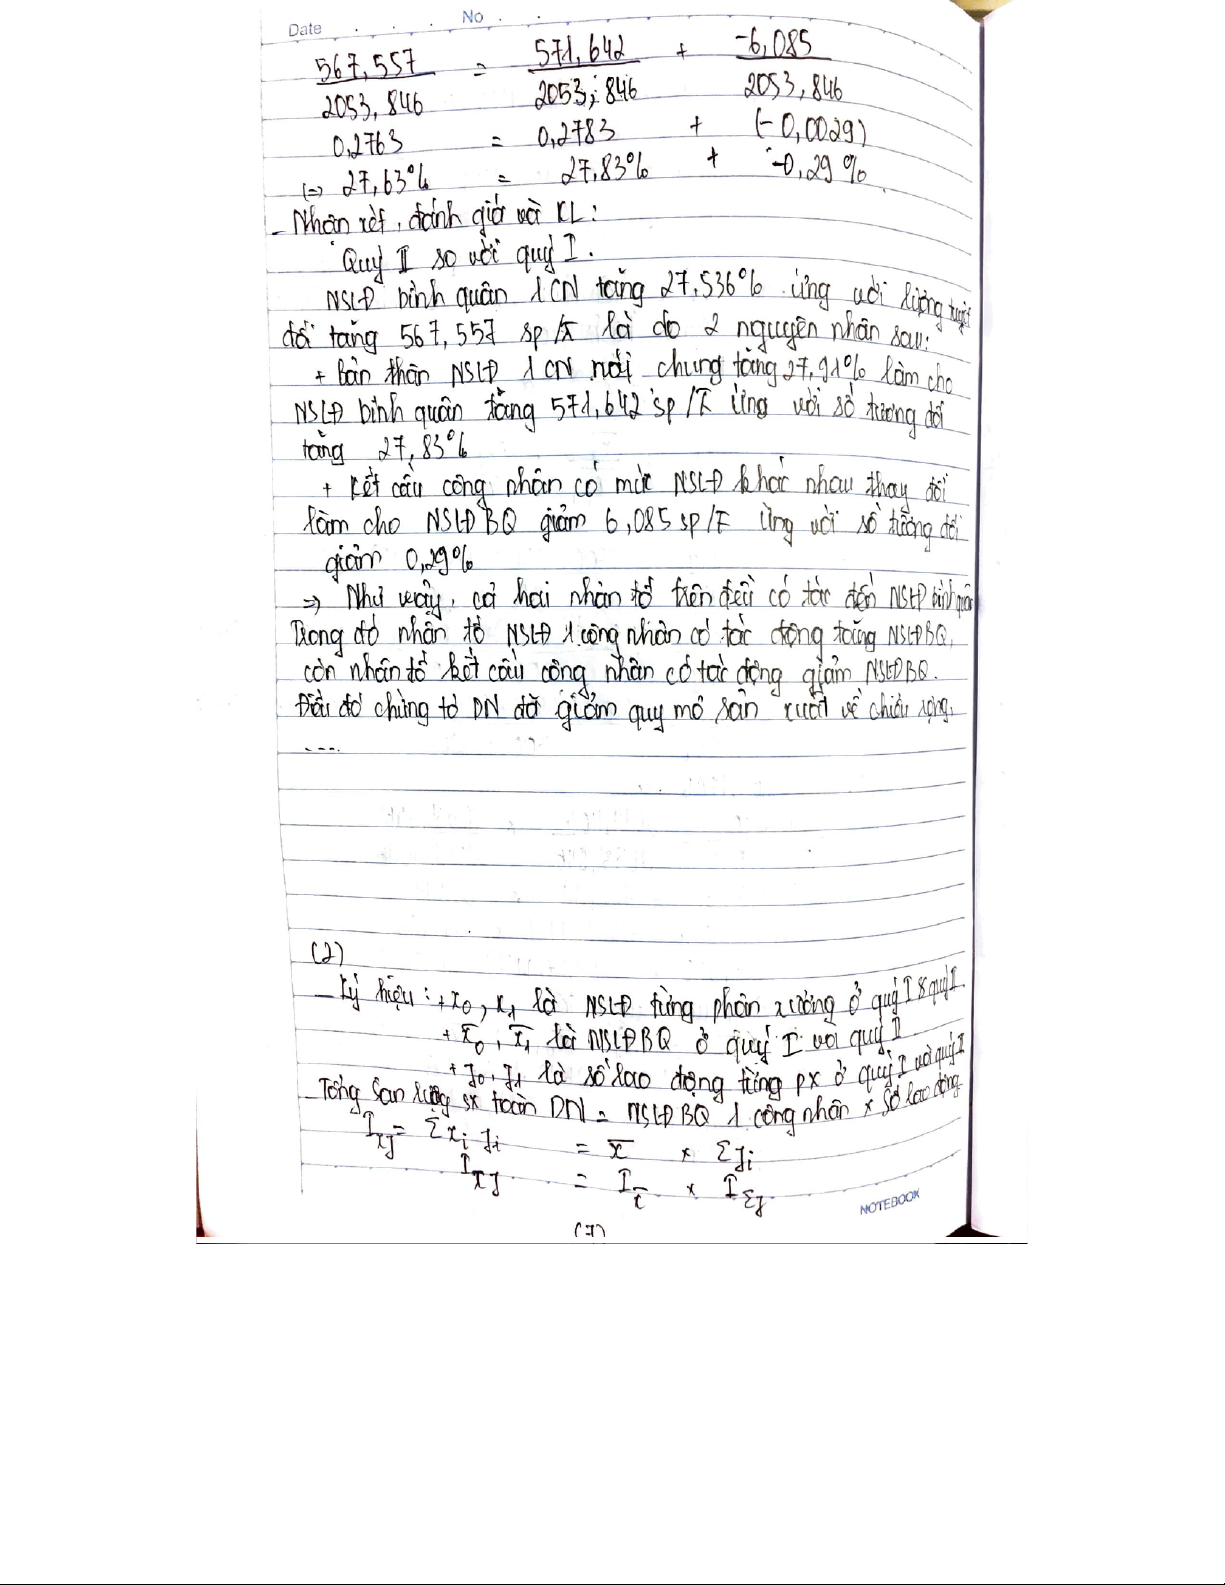 Date No
567,557 / 2053,846 = 571,642 / 2053,846 + -6,085 / 2053,846
0,2763 = 0,2783 + (-0,0029)
(=) 27,63% = 27,83% + -0,29%
- Nhận xét, đánh giá và KL:
Quý II so với quý I.
NSLĐ bình quân 1 CN tăng 27,536% ứng với lượng tuyệt
đối tăng 567,557 sp/x̄ là do 2 nguyên nhân sau:
+ Bản thân NSLĐ 1 CN nói chung tăng 27,91% làm cho
NSLĐ bình quân tăng 571,642 sp/F ứng với số tương đối
tăng 27,83%
+ Kết cấu công nhân có mức NSLĐ khác nhau thay đổi
làm cho NSLĐBQ giảm 6,085 sp/F ứng với số tương đối
giảm 0,29%
=> Như vậy, cả hai nhân tố trên đều có tác đến NSLĐ bình quân
Trong đó nhân tố NSLĐ 1 công nhân có tác động tăng NSLĐBQ,
còn nhân tố kết cấu công nhân có tác động giảm NSLĐBQ.
Điều đó chứng tỏ DN đã giảm quy mô sản xuất về chiều rộng.
....
(2)
- Ký hiệu: + x₀, x₁ là NSLĐ từng phân xưởng ở quý I & quý I
+ x̄₀, x̄₁ là NSLĐBQ ở quý I và quý II
+ J₀, J₁ là số lao động từng px ở quý I và quý I
- Tổng sản lượng sx toàn DN = NSLĐBQ 1 công nhân × số lao động
I_xJ = Σxᵢ Jᵢ = x̄ × ΣJᵢ
I_xJ = I_x̄ × I_ΣJ
NOTEBOOK
(7)